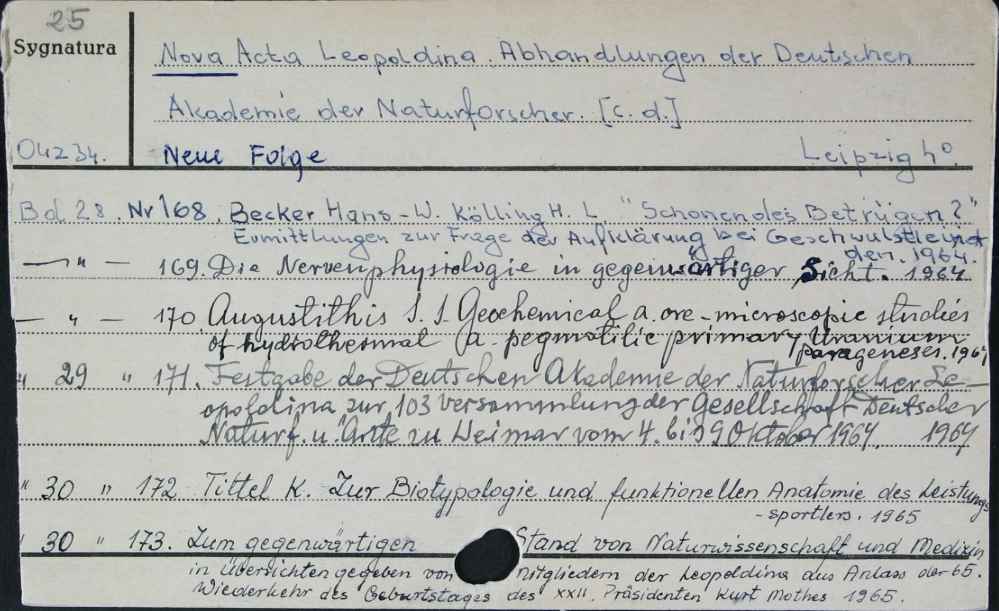 25
Sygnatura
Nova Acta Leopoldina. Abhandlungen der Deutschen
Akademie der Naturforscher. [c. d.]
Neue Folge Leipzig 4°.
Bd 28. Nr 168. Becker Hans-W. Kölling H. L. "Schonendes Betrügen?"
Ermittlungen zur Frage der Aufklärung bei Geschwulstleiden
den. 1964.
— " — 169. Die Nervenphysiologie in gegenwärtiger Sicht. 1964
— " — 170. Augustithis S. S. Geochemical a. ore-microscopic studies
of hydrothermal a. pegmatilic primary Uranium
parageneses. 1964
" 29 " 171. Festgabe der Deutschen Akademie der Naturforscher Le-
opoldina zur 103 Versammlung der Gesellschaft Deutscher
Naturf. u. Ärzte zu Weimar vom 4. bis 9 Oktober 1964. 1964
" 30 " 172 Tittel K. Zur Biotypologie und funktionellen Anatomie des Leistungs
-sportlers. 1965
" 30 " 173. Zum gegenwärtigen Stand von Naturwissenschaft und Medizin
in Übersichten gegeben von Mitgliedern der Leopoldina aus Anlass der 65.
Wiederkehr des Geburtstages des XXII. Präsidenten Kurt Mothes 1965.